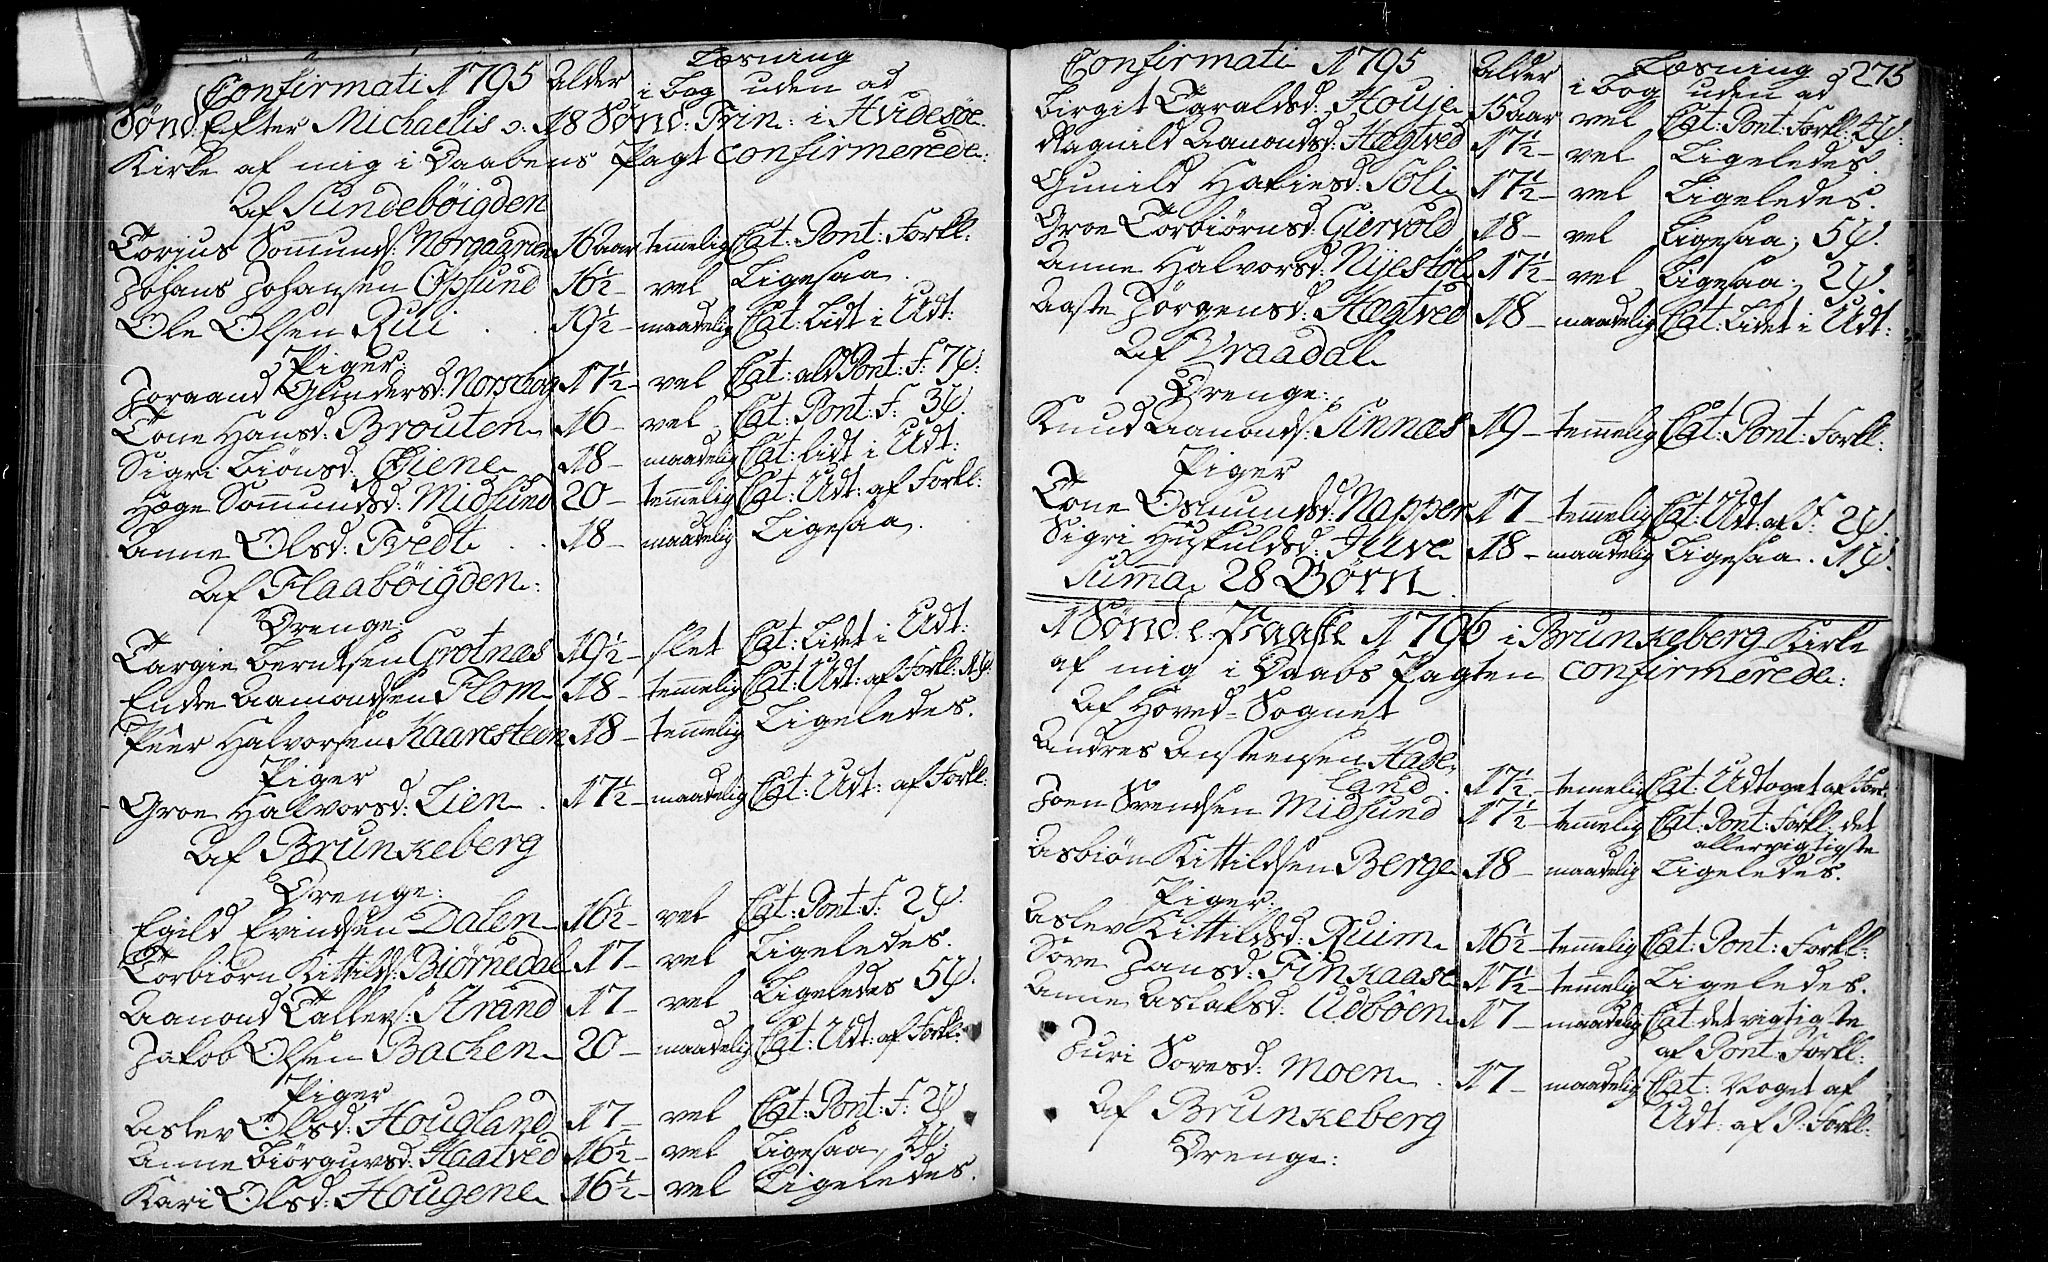 Confirmati 1795 Alder Læsning
i bog uden ad
Sønd: Efter Michaelis ɔ: 18 Sønd: Trin: i Hvidesøe
Kirke af mig i Daabens Pagt confirmerede:
Af Sundebøigden
Torjus Sommunds: Norgaarden 16 aar temmelig Cat: Pont: Forkl:
Johans Johansen Opsund 16½ – vel Ligesaa.
Ole Olsen Rui . . 19½ – maadelig Cat: Lidt i Udt:
Piger
Joraand Gundersd: Norschog 17½ – vel Cat: ald Pont: F: 7 ψ.
Tone Hansd: Brouten 16 – vel Cat: Pont: F: 3 ψ.
Sigri Biönsd: 18 – maadelig Cat: Lidt i Udt:
Hæge Sommundsd: Midsund 20 – temmelig Cat: Udt: af Forkl:
Anne Olsd: Tvedt . . 18 – maadelig Ligesaa.
Af Flaabøigden:
Drenge:
Targie Berntsen Grotnæs 19½ – slet Cat: Lidet i Udt:
Endre Aamondsen Flom 18 – temmelig Cat: Udt: af Forkl: 1 ψ.
Peer Halvorsen Kaaresteen 18 – temmelig Ligeledes.
Piger
Groe Halvorsd: Lien . 17½ – maadelig Cat: Udt: af Forkl:
Af Brunkeberg
Drenge:
Egild Evindsen Dalen 16½ – vel Cat: Pont: F: 2 ψ.
Torbiörn Kittilds: Biörnedal 17 – vel Ligeledes.
Aamond Tallevs: Strand 17 – vel Ligeledes 5 ψ.
Jakob Olsen Bachen 20 – maadelig Cat: Udt: af Forkl:
Piger
Aslev Olsd: Hougland 17 – vel Cat: Pont: F: 2 ψ
Anne Biörguvsd: Haatved 16½ – vel Ligesaa, 4 ψ.
Kari Olsd: Hougene 16½ – vel Ligeledes.
Confirmati 1795 Alder Læsning 275
i bog uden ad
Birgit Taraldsd: Houje 15 aar vel Cat: Pont: Forkl: 4 ψ.
Ragnild Aamondsd: Hægtved 17½ – vel Ligeledes.
Gunild Hakiesd: Soli 17½ – vel Ligeledes.
Groe Torbiörnsd: Giervold 18 – vel Ligesaa, 5 ψ.
Anne Halvorsd: Nijestöl 17½ – vel Ligesaa, 2 ψ.
Aaste Jörgensd: Hægtved 18 – maadelig Cat: Lidet i Udt:
Af Vraadal
Drenge:
Knud Aamonds: Sinnæs 19 – temmelig Cat: Pont: Forkl:
Piger
Tone Osmundsd: Napper 17 – temmelig Cat: Udt: af F: 2 ψ.
Sigri Huskuldsd: Juve 18 – maadelig Ligesaa. 1 ψ.
Summa 28 Børn
1 Sønd: e: Paaske 1796 i Brunkeberg Kirke
af mig i Daabs Pagten confirmerede:
Af Hoved-Sognet
Andres Ansteensen Hade
land . 17½ – temelig Cat: Udtoget af Fork:
Joen Svendsen Midsund 17½ – temmelig Cat: Pont: Forkl: det
allervigtigste
Asbiön Kittildsen Berge 18 – maadelig Ligeledes.
Piger:
Aslev Kittildsd: Ruim 16½ – temmelig Cat: Pont: Forkl:
Söve Jansd: Finkaase 17½ – temmelig Ligeledes.
Anne Aslaksd: Udböen 17 – maadelig Cat: det vigtigste
af Pont: Forkl:
Juri Sovesd: Moen . 17 – maadelig Cat: Noget af
Udt: af P: Forkl:
Af Brunkeberg
Drenge: